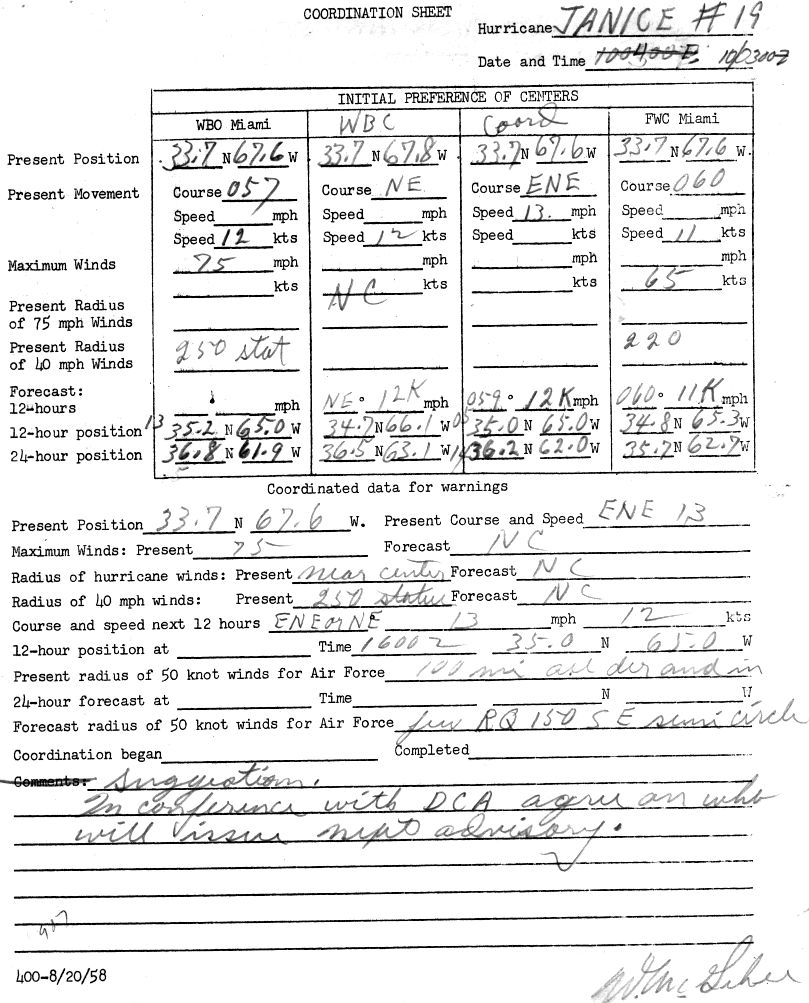 COORDINATION SHEET
Hurricane JANICE # 19
Date and Time 1004,00Z 10/0300Z
INITIAL PREFERENCE OF CENTERS
WBO Miami WBC Coord FWC Miami
Present Position 33.7 N 67.6 W 33.7 N 67.8 W 33.7 N 67.6 W 33.7 N 67.6 W.
Present Movement Course 057 Course NE Course ENE Course 060
Speed mph Speed mph Speed 13. mph Speed mph
Speed 12 kts Speed 12 kts Speed kts Speed 11 kts
Maximum Winds 75 mph mph mph mph
kts NC kts kts 65 kts
Present Radius
of 75 mph Winds
Present Radius 250 stat 220
of 40 mph Winds
Forecast:
12-hours mph NE° 12K mph 059° 12K mph 060° 11K mph
12-hour position 13 35.2 N 65.0 W 34.7 N 66.1 W 35.0 N 65.0 W 34.8 N 65.3 W
24-hour position 36.8 N 61.9 W 36.5 N 63.1 W 36.2 N 62.0 W 35.7 N 62.7 W
Coordinated data for warnings
Present Position 33.7 N 67.6 W. Present Course and Speed ENE 13
Maximum Winds: Present 75 Forecast NC
Radius of hurricane winds: Present near center Forecast NC
Radius of 40 mph winds: Present 250 statue Forecast NC
Course and speed next 12 hours ENE or NE 13 mph 12 kts
12-hour position at Time 1600Z 35.0 N 65.0 W
Present radius of 50 knot winds for Air Force 100 mi all dir and in
24-hour forecast at Time N W
Forecast radius of 50 knot winds for Air Force fwx RQ 150 SE semi circle
Coordination began Completed
Comments: Suggestion.
In conference with DCA agree on who
will issue next advisory.
400-8/20/58